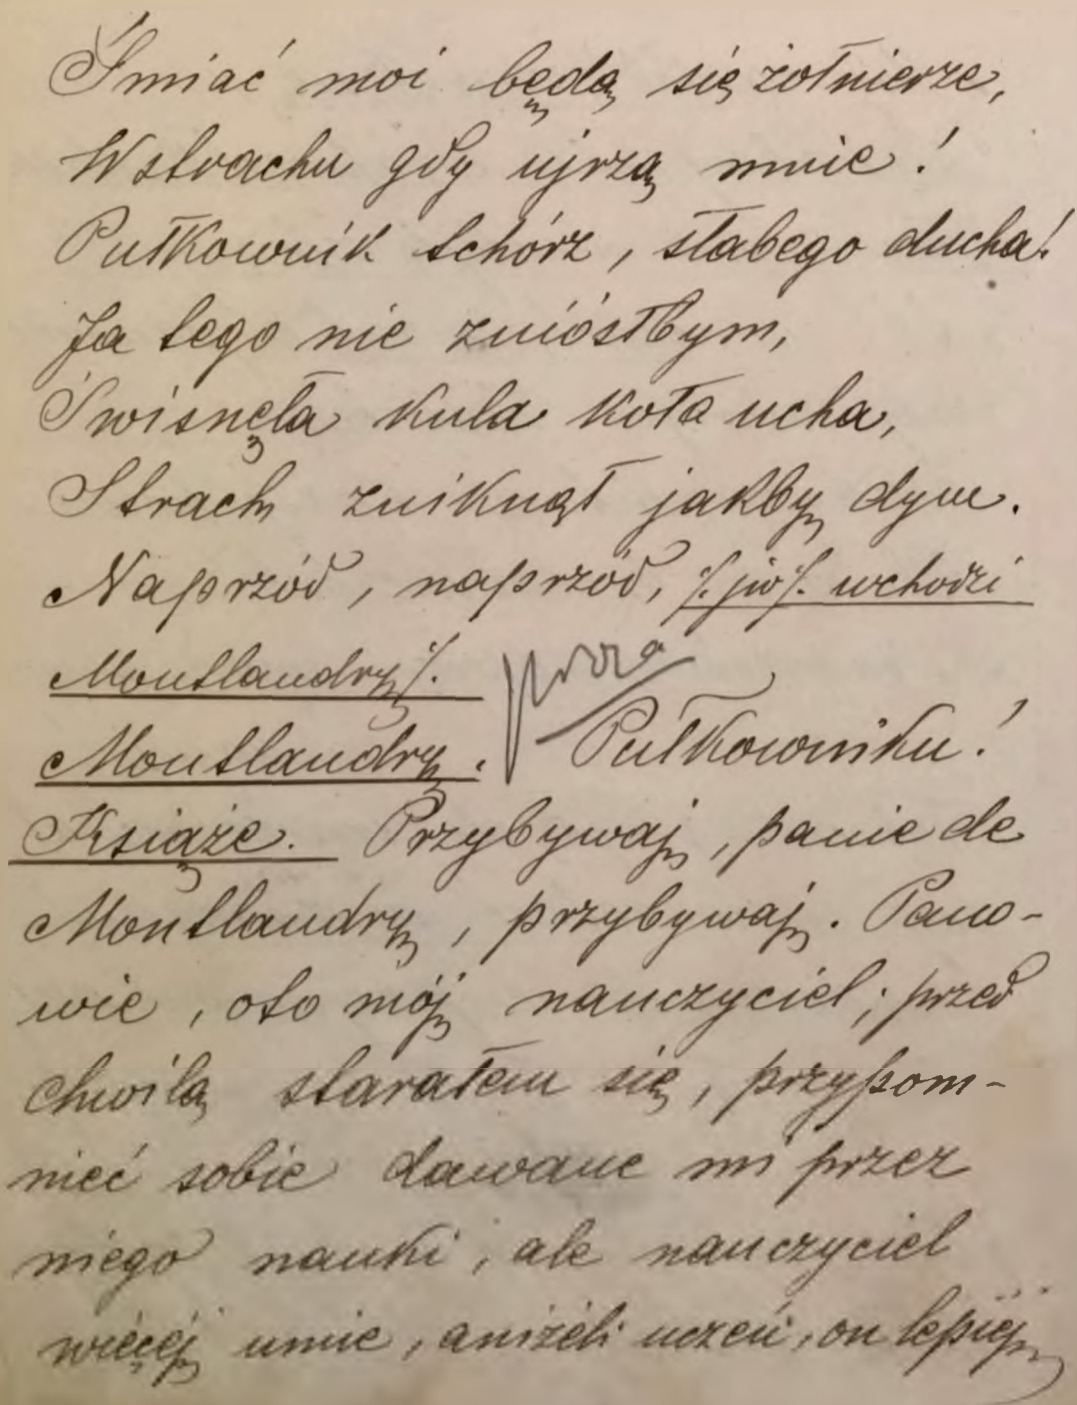 Śmiać moi będą się żołnierze,
W strachu gdy ujrzą mnie!
Pułkownik tchórz, słabego ducha!
Ja tego nie zniósłbym,
Świsnęła kula koła ucha,
Strach zniknął jakby dym.
Naprzód, naprzód, /. jw /. wchodzi
Montlandry /.
proza
Montlandry. Pułkowniku!
Książe. Przybywaj, panie de
Montlandry, przybywaj. Pano-
wie, oto mój nauczyciel; przed
chwilą starałem się, przypom-
nieć sobie dawane mi przez
niego nauki, ale nauczyciel
więcej umie, aniżeli uczeń, on lepiej